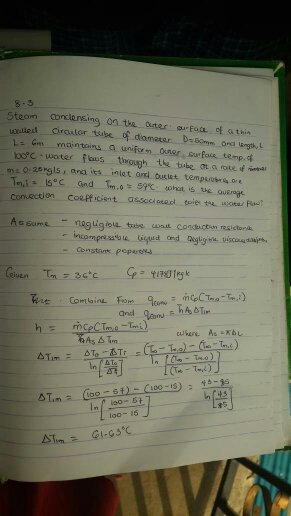 8-3
Steam condensing on the outer surface of a thin
walled circular tube of diameter D=50mm and length, L
L = 6m maintains a uniform outer surface temp. of
100°C. water flows through the tube at a rate of
m = 0.25kg/s, and its inlet and outlet temperatures are
Tm,i = 15°C and Tm,o = 57°C. what is the average
convection coefficient associated with the water flow?
Assume - negligible tube wall conduction resistance
- incompressible liquid and negligible viscous
- constant properties
Given Tm = 36°C Cp = 4178 J/kg K
Combine from qconv = ṁCp(Tm,o - Tm,i)
and qconv = h̄AsΔTlm
h = ṁCp(Tm,o - Tm,i) / AsΔTlm where As = πDL
ΔTlm = ΔTo - ΔTi / ln[ΔTo/ΔTi] = (To - Tm,o) - (Ts - Tm,i) / ln[(Ts - Tm,o)/(Ts - Tm,i)]
ΔTlm = (100 - 57) - (100 - 15) / ln[100 - 57/100 - 15] = 43 - 85 / ln[43/85]
ΔTlm = 61.63°C